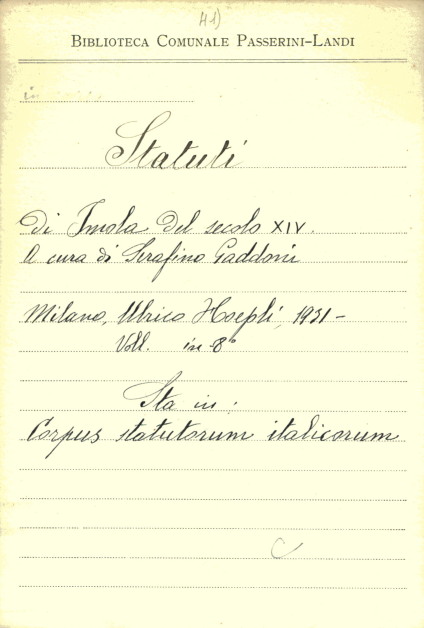 41)
BIBLIOTECA COMUNALE PASSERINI-LANDI
Statuti
di Imola del secolo XIV.
A cura di Serafino Gaddoni
Milano, Ulrico Hoepli, 1931-
Voll. in-8°
Sta in:
Corpus statutorum italicorum